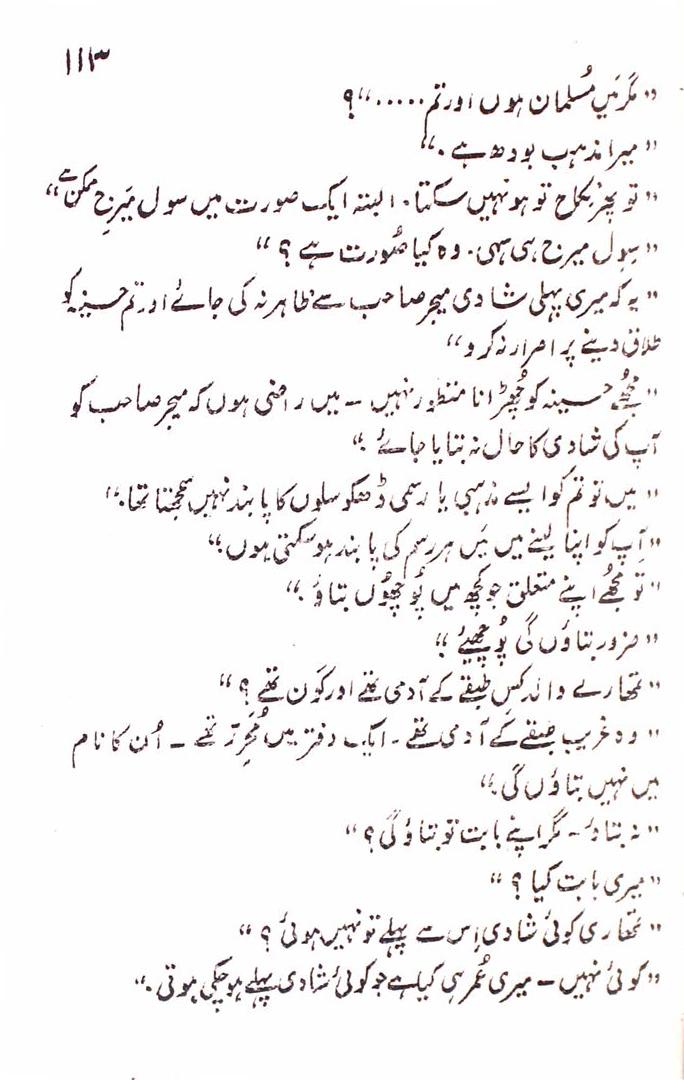 ۱۱۳
"مگر میں مُسلمان ہوں اور تم ....."؟
"میرا مذہب بودھ ہے۔"
"تو پھر نکاح تو ہو نہیں سکتا۔ البتہ ایک صورت میں سول میرج ممکن ہے"
"سِول میرج ہی سہی۔ وہ کیا صُورت ہے؟"
"یہ کہ میری پہلی شادی میجر صاحب سے ظاہر نہ کی جائے اور تم حسینہ کو
طلاق دینے پر اصرار نہ کرو"
"مجھے حسینہ کو چھُڑانا منظور نہیں – میں راضی ہوں کہ میجر صاحب کو
آپ کی شادی کا حال نہ بتایا جائے۔"
"میں تو تم کو ایسے مذہبی یا رسمی ڈھکوسلوں کا پابند نہیں سمجھتا تھا۔"
"آپ کو اپنا لینے میں مَیں ہر رسم کی پابند ہو سکتی ہوں۔"
"تو مجھے اپنے متعلق جو کچھ میں پُوچھوں بتاؤ۔"
"ضرور بتاؤں گی پُوچھیے۔"
"تمھارے والد کس طبقے کے آدمی تھے اور کَون تھے؟"
"وہ غریب طبقے کے آدمی تھے۔ ایک دفتر میں مُحرِّر تھے – اُن کا نام
میں نہیں بتاؤں گی۔"
"نہ بتاؤ – مگر اپنے بابت تو بتاؤ گی؟"
"میری بابت کیا؟"
"تمھاری کوئی شادی اِس سے پہلے تو نہیں ہوئی؟"
"کوئی نہیں – میری عُمر ہی کیا ہے جو کوئی شادی پہلے ہو چکی ہوتی۔"